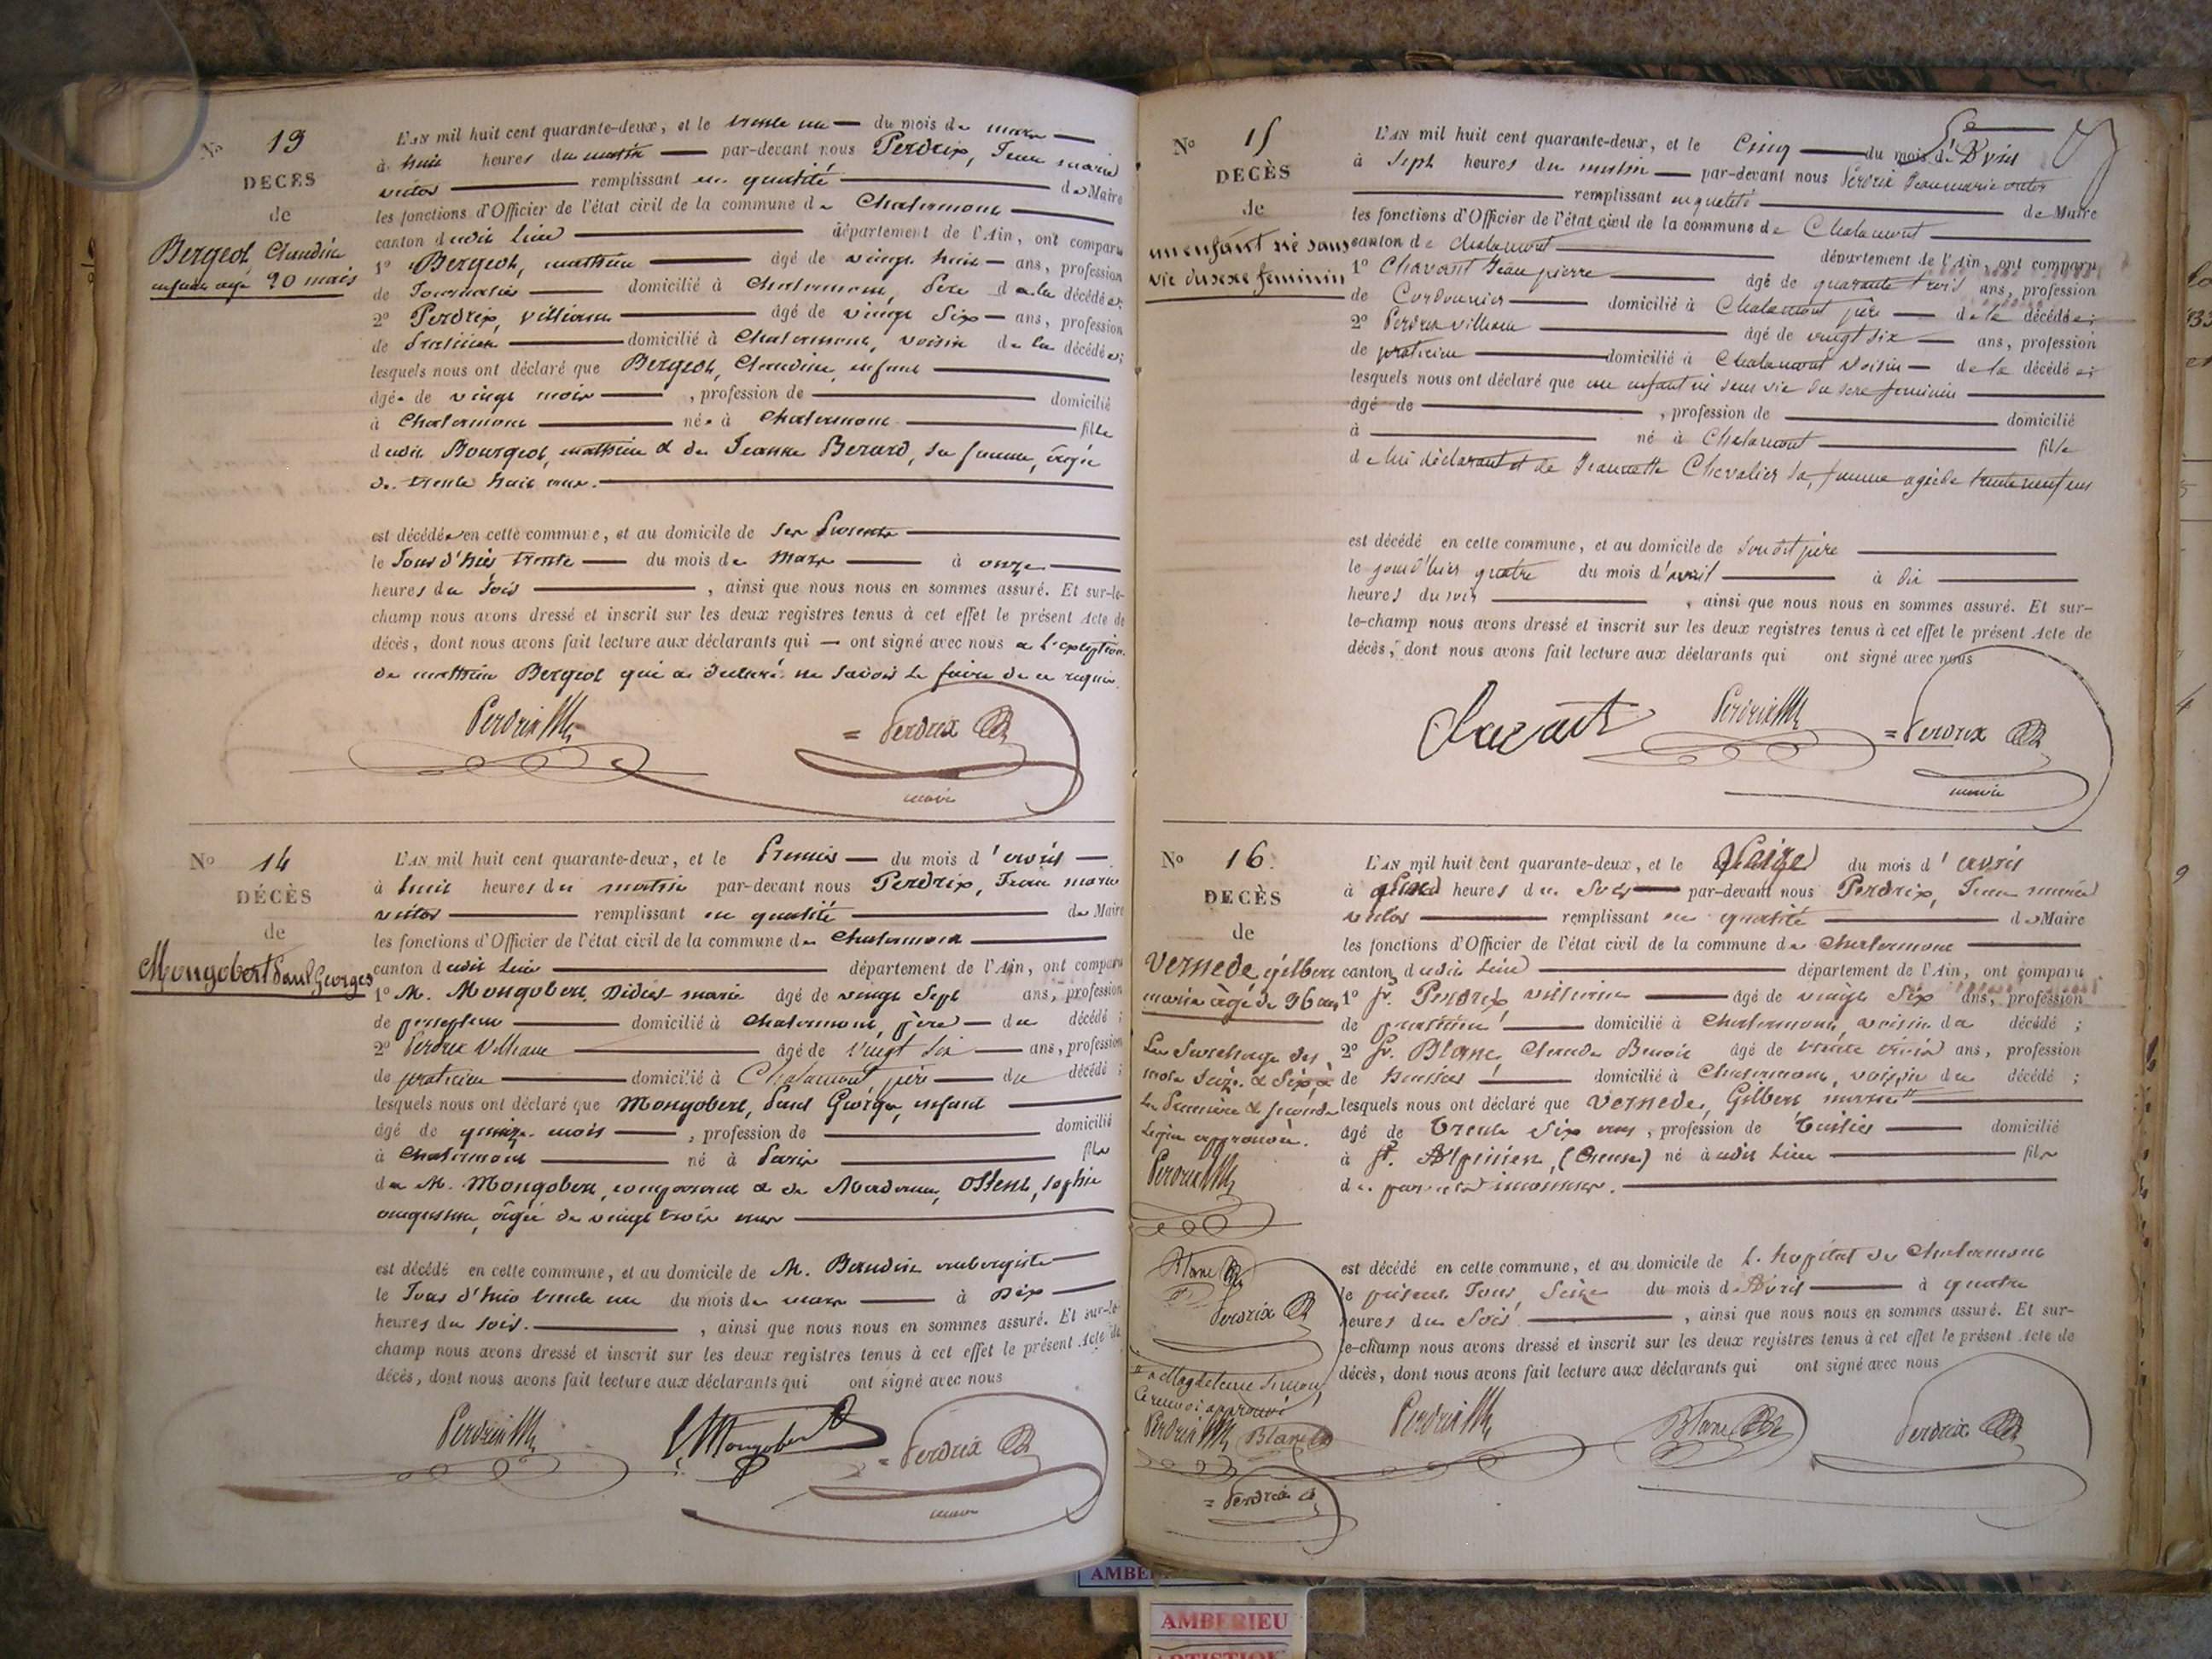 No 13
DECÈS
de
Bergeot, Claudine
enfant agée 20 mois
L'AN mil huit cent quarante-deux, et le trente un du mois de mars
à huit heures du matin par-devant nous Perdrix, Jean marie
victor remplissant en qualité de Maire
les fonctions d'Officier de l'état civil de la commune de Chalamont
canton dudit lieu département de l'Ain, ont comparu
1o Bergeot, mathieu âgé de vingt huit ans, profession
de Journalier domicilié à Chalamont, père de la décédée;
2o Perdrix, villiame âgé de vingt six ans, profession
de praticien domicilié à Chalamont, voisin de la décédée;
lesquels nous ont déclaré que Bergeot, Claudine, enfant
âgée de vingt mois, profession de domicilié
à Chalamont née à Chalamont fille
dudit Bourgeot, mathieu & de Jeanne Berard, sa femme, âgée
de trente huit ans.
est décédée en cette commune, et au domicile de ses parents
le Jour d'hier trente du mois de Mars à onze
heures du soir, ainsi que nous nous en sommes assuré. Et sur-le-
champ nous avons dressé et inscrit sur les deux registres tenus à cet effet le présent Acte de
décès, dont nous avons fait lecture aux déclarants qui ont signé avec nous a l'exception
de mathieu Bergeot qui a déclaré ne savoir le faire de ce requis.
Perdrix
= Perdrix
maire
No 14
DÉCÈS
de
Mongobert Paul Georges
L'AN mil huit cent quarante-deux, et le Premier du mois d'avril
à huit heures du matin par-devant nous Perdrix, Jean marie
victor remplissant en qualité de Maire
les fonctions d'Officier de l'état civil de la commune de Chalamont
canton dudit lieu département de l'Ain, ont comparu
1o M. Mongobert, Didier-marie âgé de vingt sept ans, profession
de percepteur domicilié à Chalamont, père du décédé;
2o Perdrix Villiame âgé de vingt six ans, profession
de praticien domicilié à Chalamont, père du décédé;
lesquels nous ont déclaré que Mongobert, Paul George, enfant
âgé de quinze mois, profession de domicilié
à Chalamont né à Paris fils
de M. Mongobert, comparant & de Madame, sophie
augustine, âgée de vingt trois ans
est décédé en cette commune, et au domicile de M. Baudin aubergiste
le Jour d'hier trente un du mois de mars à Dix
heures du soir., ainsi que nous nous en sommes assuré. Et sur-le-
champ nous avons dressé et inscrit sur les deux registres tenus à cet effet le présent Acte de
décès, dont nous avons fait lecture aux déclarants qui ont signé avec nous
Perdrix
Mongobert
= Perdrix
maire
No 15
DECÈS
de
un enfant né sans
vie du sexe feminin
L'AN mil huit cent quarante-deux, et le Cinq du mois d'Avril
à sept heures du matin par-devant nous Perdrix Jean marie victor
remplissant en qualité de Maire
les fonctions d'Officier de l'état civil de la commune de Chalamont
canton de chalamont département de l'Ain, ont comparu
1o Chavant Jean pierre âgé de quarante trois ans, profession
de Cordonnier domicilié à Chalamont père de la décédée;
2o Perdrix villiame âgé de vingt six ans, profession
de praticien domicilié à Chalamont voisin de la décédée;
lesquels nous ont déclaré que un enfant né sans vie du sexe feminin
âgé de, profession de domicilié
à né à Chalamont fille
de lui déclarant et de Jeannette Chevalier sa femme agée de trente neuf ans
est décédé en cette commune, et au domicile de son dit père
le jour d'hier quatre du mois d'avril à dix
heures du soir, ainsi que nous nous en sommes assuré. Et sur-
le-champ nous avons dressé et inscrit sur les deux registres tenus à cet effet le présent Acte de
décès, dont nous avons fait lecture aux déclarants qui ont signé avec nous
Chavant
Perdrix
= Perdrix
maire
No 16.
DECÈS
de
Vernede, gilbert
marin âgé de 36 ans
La surcharge des
mots seize & six, à
la première & seconde
ligne approuvée.
Perdrix
Blanc
Perdrix
Magdeleine Simon
Ce renvoi approuvé
Perdrix Blanc
= Perdrix
L'AN mil huit cent quarante-deux, et le Seize du mois d'avril
à heures du soir par-devant nous Perdrix, Jean marie
victor remplissant en qualité de Maire
les fonctions d'Officier de l'état civil de la commune de Chalamont
canton dudit lieu département de l'Ain, ont comparu
1o Sr. Perdrix villiame âgé de vingt six ans, profession
de praticien domicilié à Chalamont, voisin du décédé;
2o Sr. Blanc, Claude Benoit âgé de trente trois ans, profession
de huissier domicilié à Chalamont, voisin du décédé;
lesquels nous ont déclaré que Vernede, Gilbert
âgé de Trente six ans, profession de Tuilier domicilié
à St. Alpinien, (Creuse) né audit lieu fils
de
est décédé en cette commune, et au domicile de l'hopital de Chalamont
le présent Jour Seize du mois d'Avril à quatre
heures du Soir, ainsi que nous nous en sommes assuré. Et sur-
le-champ nous avons dressé et inscrit sur les deux registres tenus à cet effet le présent Acte de
décès, dont nous avons fait lecture aux déclarants qui ont signé avec nous
Perdrix
Blanc
Perdrix
AMBERIEU